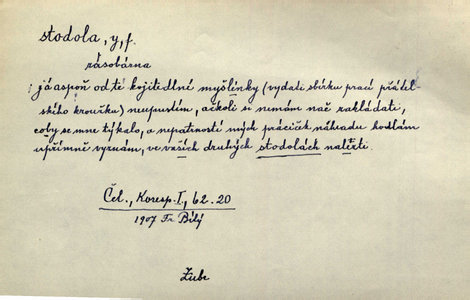 stodola, y, f.
zásobárna
: já aspoň od té kojitedlné myšlínky (vydati sbírku prací přátel-
ského kroužku) neupustím, ačkoli si nemám nač zakládati,
coby se mne týkalo, a nepatrnosti mých práciček náhradu hodlám
upřímně vyznám, ve vašich druhých stodolách nalézti.
Čel., Koresp. I, 62.20
1907 Fr. Bílý
Zubr